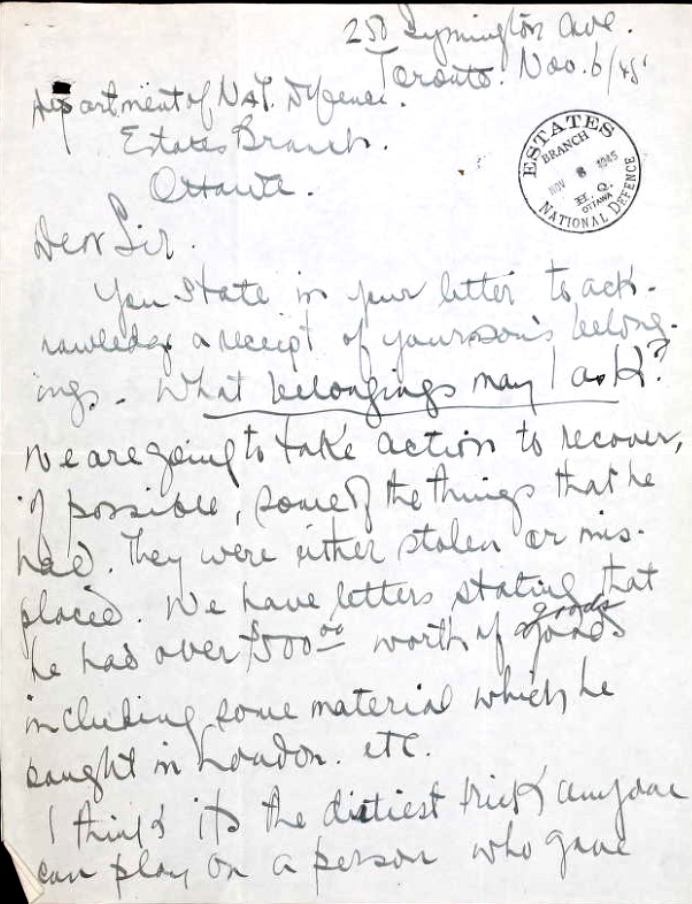 250 Lymington Ave.
Toronto. Nov. 6/45
Department of Nat. Defence.
Estates Branch.
Ottawa.
ESTATES
BRANCH
NOV 8 1945
H. Q.
OTTAWA
NATIONAL DEFENCE
Dear Sir.
You state in your letter to ack-
nowledge a receipt of your son's belong-
ings. What belongings may I ask?
We are going to take action to recover,
if possible, some of the things that he
had. They were either stolen or mis-
placed. We have letters stating that
goods
he had over $500.00 worth of goods
including some material which he
bought in London. etc.
I think its the dirtiest trick anyone
can play on a person who gave